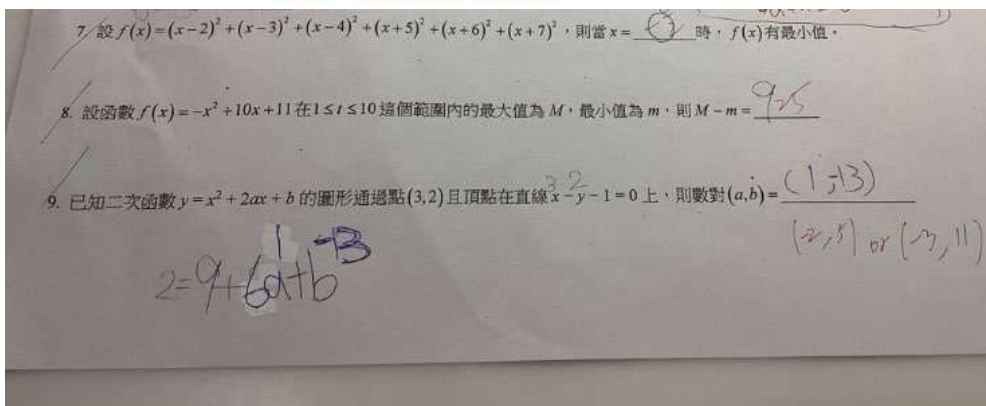 7. 設 f(x)=(x-2)²+(x-3)²+(x-4)²+(x+5)²+(x+6)²+(x+7)²，則當 x=______時，f(x)有最小值。
8. 設函數 f(x)=-x²+10x+11在1≤t≤10這個範圍內的最大值為 M，最小值為 m，則 M-m=925
3 2
9. 已知二次函數 y=x²+2ax+b 的圖形通過點(3,2)且頂點在直線 x-y-1=0 上，則數對(a,b)=(1,-13)
(-2,5) or (-3,11)
1 -13
2=9+6a+b